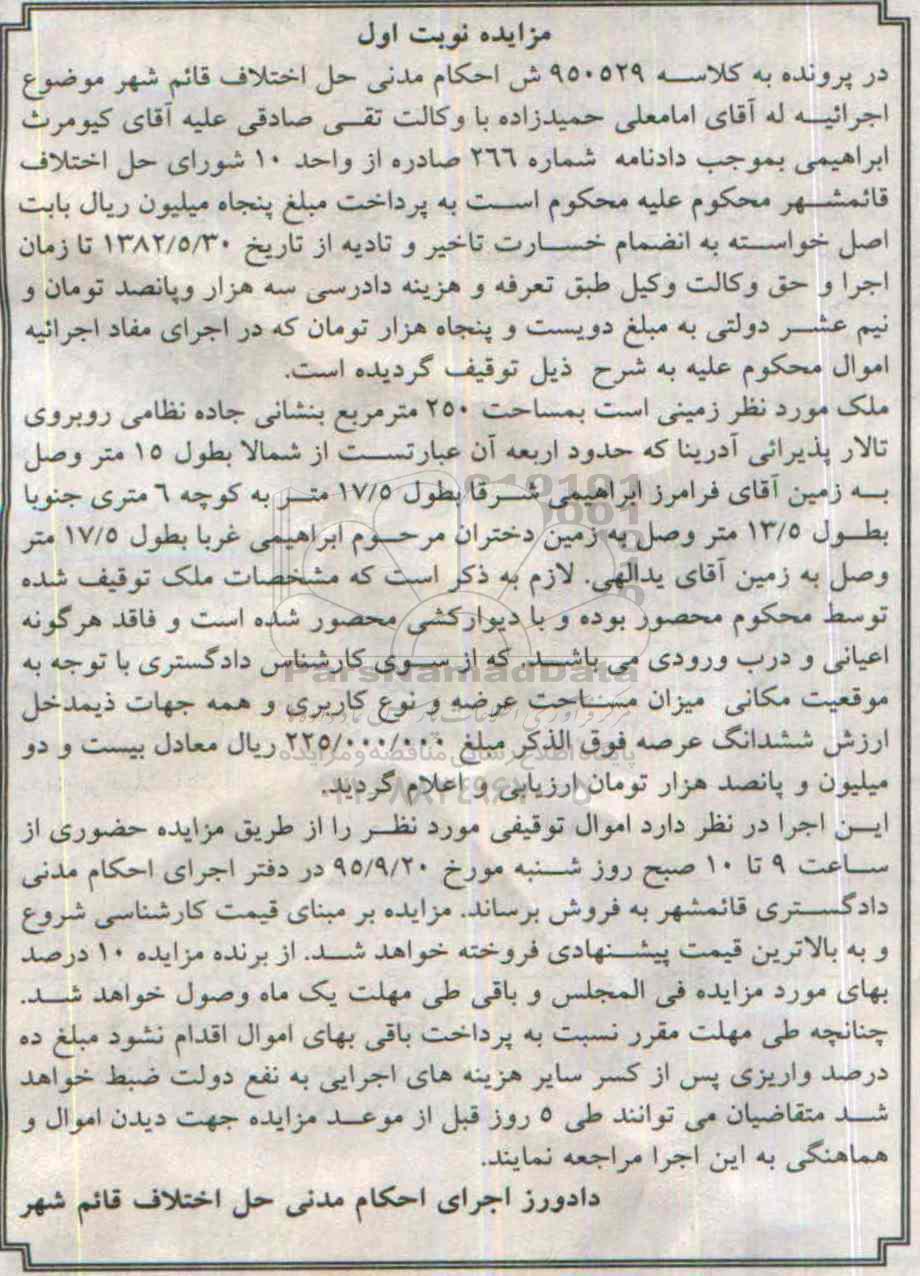 مزایده نوبت اول
در پرونده به کلاسه ۹۵۰۵۲۹ ش احکام مدنی حل اختلاف قائم شهر موضوع
اجرائیه له آقای امامعلی حمیدزاده با وکالت تقی صادقی علیه آقای کیومرث
ابراهیمی بموجب دادنامه شماره ۲۶۶ صادره از واحد ۱۰ شورای حل اختلاف
قائمشهر محکوم علیه محکوم است به پرداخت مبلغ پنجاه میلیون ریال بابت
اصل خواسته به انضمام خسارت تاخیر و تادیه از تاریخ ۱۳۸۲/۵/۳۰ تا زمان
اجرا و حق وکالت وکیل طبق تعرفه و هزینه دادرسی سه هزار وپانصد تومان و
نیم عشر دولتی به مبلغ دویست و پنجاه هزار تومان که در اجرای مفاد اجرائیه
اموال محکوم علیه به شرح ذیل توقیف گردیده است.
ملک مورد نظر زمینی است بمساحت ۲۵۰ مترمربع بنشانی جاده نظامی روبروی
تالار پذیرائی آدرینا که حدود اربعه آن عبارتست از شمالا بطول ۱۵ متر وصل
به زمین آقای فرامرز ابراهیمی شرقا بطول ۱۷/۵ متر به کوچه ۶ متری جنوبا
بطول ۱۳/۵ متر وصل به زمین دختران مرحوم ابراهیمی غربا بطول ۱۷/۵ متر
وصل به زمین آقای یدالهی. لازم به ذکر است که مشخصات ملک توقیف شده
توسط محکوم محصور بوده و با دیوارکشی محصور شده است و فاقد هرگونه
اعیانی و درب ورودی می باشد. که از سوی کارشناس دادگستری با توجه به
موقعیت مکانی میزان مساحت عرضه و نوع کاربری و همه جهات ذیمدخل
ارزش ششدانگ عرصه فوق الذکر مبلغ ۲۲۵/۰۰۰/۰۰۰ ریال معادل بیست و دو
میلیون و پانصد هزار تومان ارزیابی و اعلام گردید.
این اجرا در نظر دارد اموال توقیفی مورد نظر را از طریق مزایده حضوری از
ساعت ۹ تا ۱۰ صبح روز شنبه مورخ ۹۵/۹/۲۰ در دفتر اجرای احکام مدنی
دادگستری قائمشهر به فروش برساند. مزایده بر مبنای قیمت کارشناسی شروع
و به بالاترین قیمت پیشنهادی فروخته خواهد شد. از برنده مزایده ۱۰ درصد
بهای مورد مزایده فی المجلس و باقی طی مهلت یک ماه وصول خواهد شد.
چنانچه طی مهلت مقرر نسبت به پرداخت باقی بهای اموال اقدام نشود مبلغ ده
درصد واریزی پس از کسر سایر هزینه های اجرایی به نفع دولت ضبط خواهد
شد متقاضیان می توانند طی ۵ روز قبل از موعد مزایده جهت دیدن اموال و
هماهنگی به این اجرا مراجعه نمایند.
دادورز اجرای احکام مدنی حل اختلاف قائم شهر
ParsNamadData